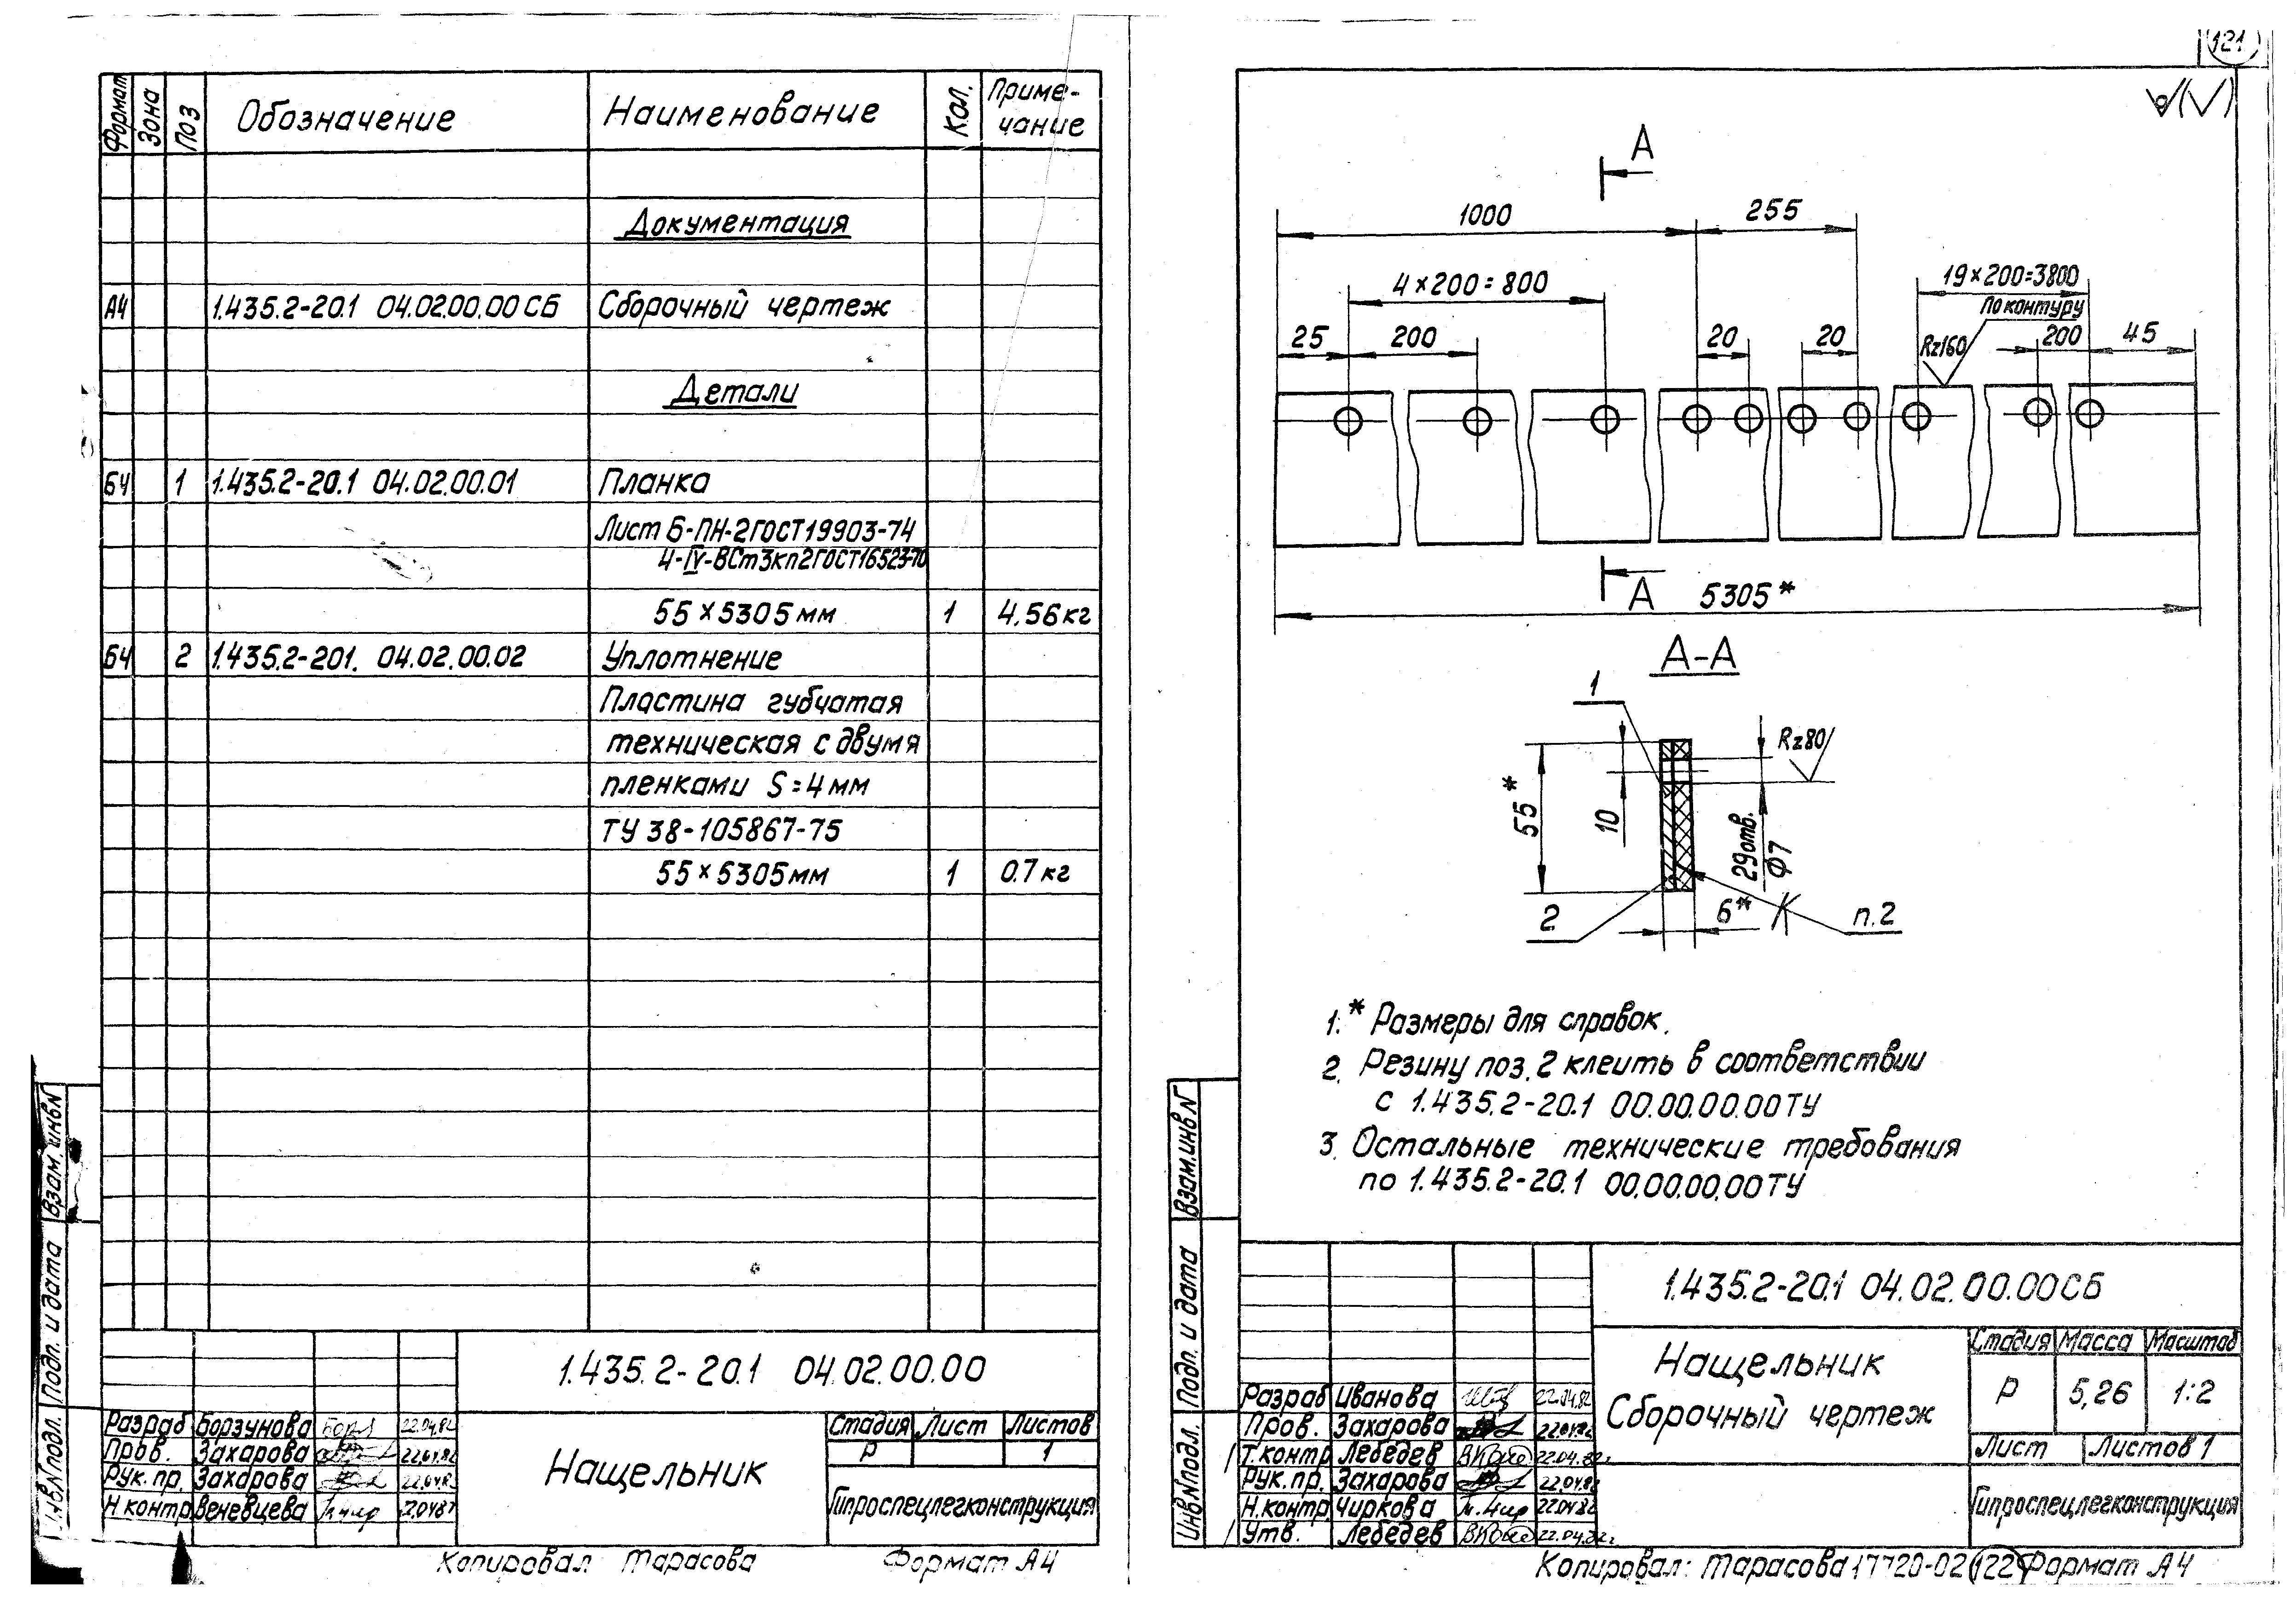 Формат Зона Поз Обозначение Наименование Кол. Приме-
чание
Документация
А4 1.435.2-20.1 04.02.00.00 СБ Сборочный чертеж
Детали
БЧ 1 1.435.2-20.1 04.02.00.01 Планка
Лист Б-ПН-2 ГОСТ 19903-74
4-IV-ВСт3кп2 ГОСТ 16523-70
55 × 5305 мм 1 4.56 кг
БЧ 2 1.435.2-201. 04.02.00.02 Уплотнение
Пластина губчатая
техническая с двумя
пленками S = 4 мм
ТУ 38-105867-75
55 × 5305 мм 1 0.7 кг
Взам. инв N
Подп. и дата
Инв N подл.
1.435.2-20.1 04.02.00.00
Разраб Борзунова 22.04.82
Пров. Захарова 22.04.82
Рук. пр. Захарова 22.04.82
Н контр. Веневцева
Нащельник
Стадия Лист Листов
Р 1
Гипроспецлегконструкция
Копировал: Тарасова Формат А4
121
А
1000 255
4 × 200 = 800
19 × 200 = 3800
По контуру
25 200 20 20 Rz160 200 45
А 5305*
А-А
1
Rz80
55*
10
29 отв.
Ф7
2 6* п.2
1. * Размеры для справок.
2. Резину поз. 2 клеить в соответствии
с 1.435.2-20.1 00.00.00.00 ТУ
3. Остальные технические требования
по 1.435.2-20.1 00.00.00.00 ТУ
Взам. инв N
Подп. и дата
Инв N подл.
1.435.2-20.1 04.02.00.00 СБ
Нащельник
Сборочный чертеж
Стадия Масса Масштаб
Р 5,26 1:2
Лист Листов 1
Гипроспецлегконструкция
Разраб Иванова 22.04.82
Пров. Захарова 22.04.82
Т. контр Лебедев 22.04.82г.
Рук. пр. Захарова 22.04.82
Н. контр. Чиркова 22.04.82
Утв. Лебедев 22.04.82г
Копировал: Тарасова 17720-02 122 Формат А4